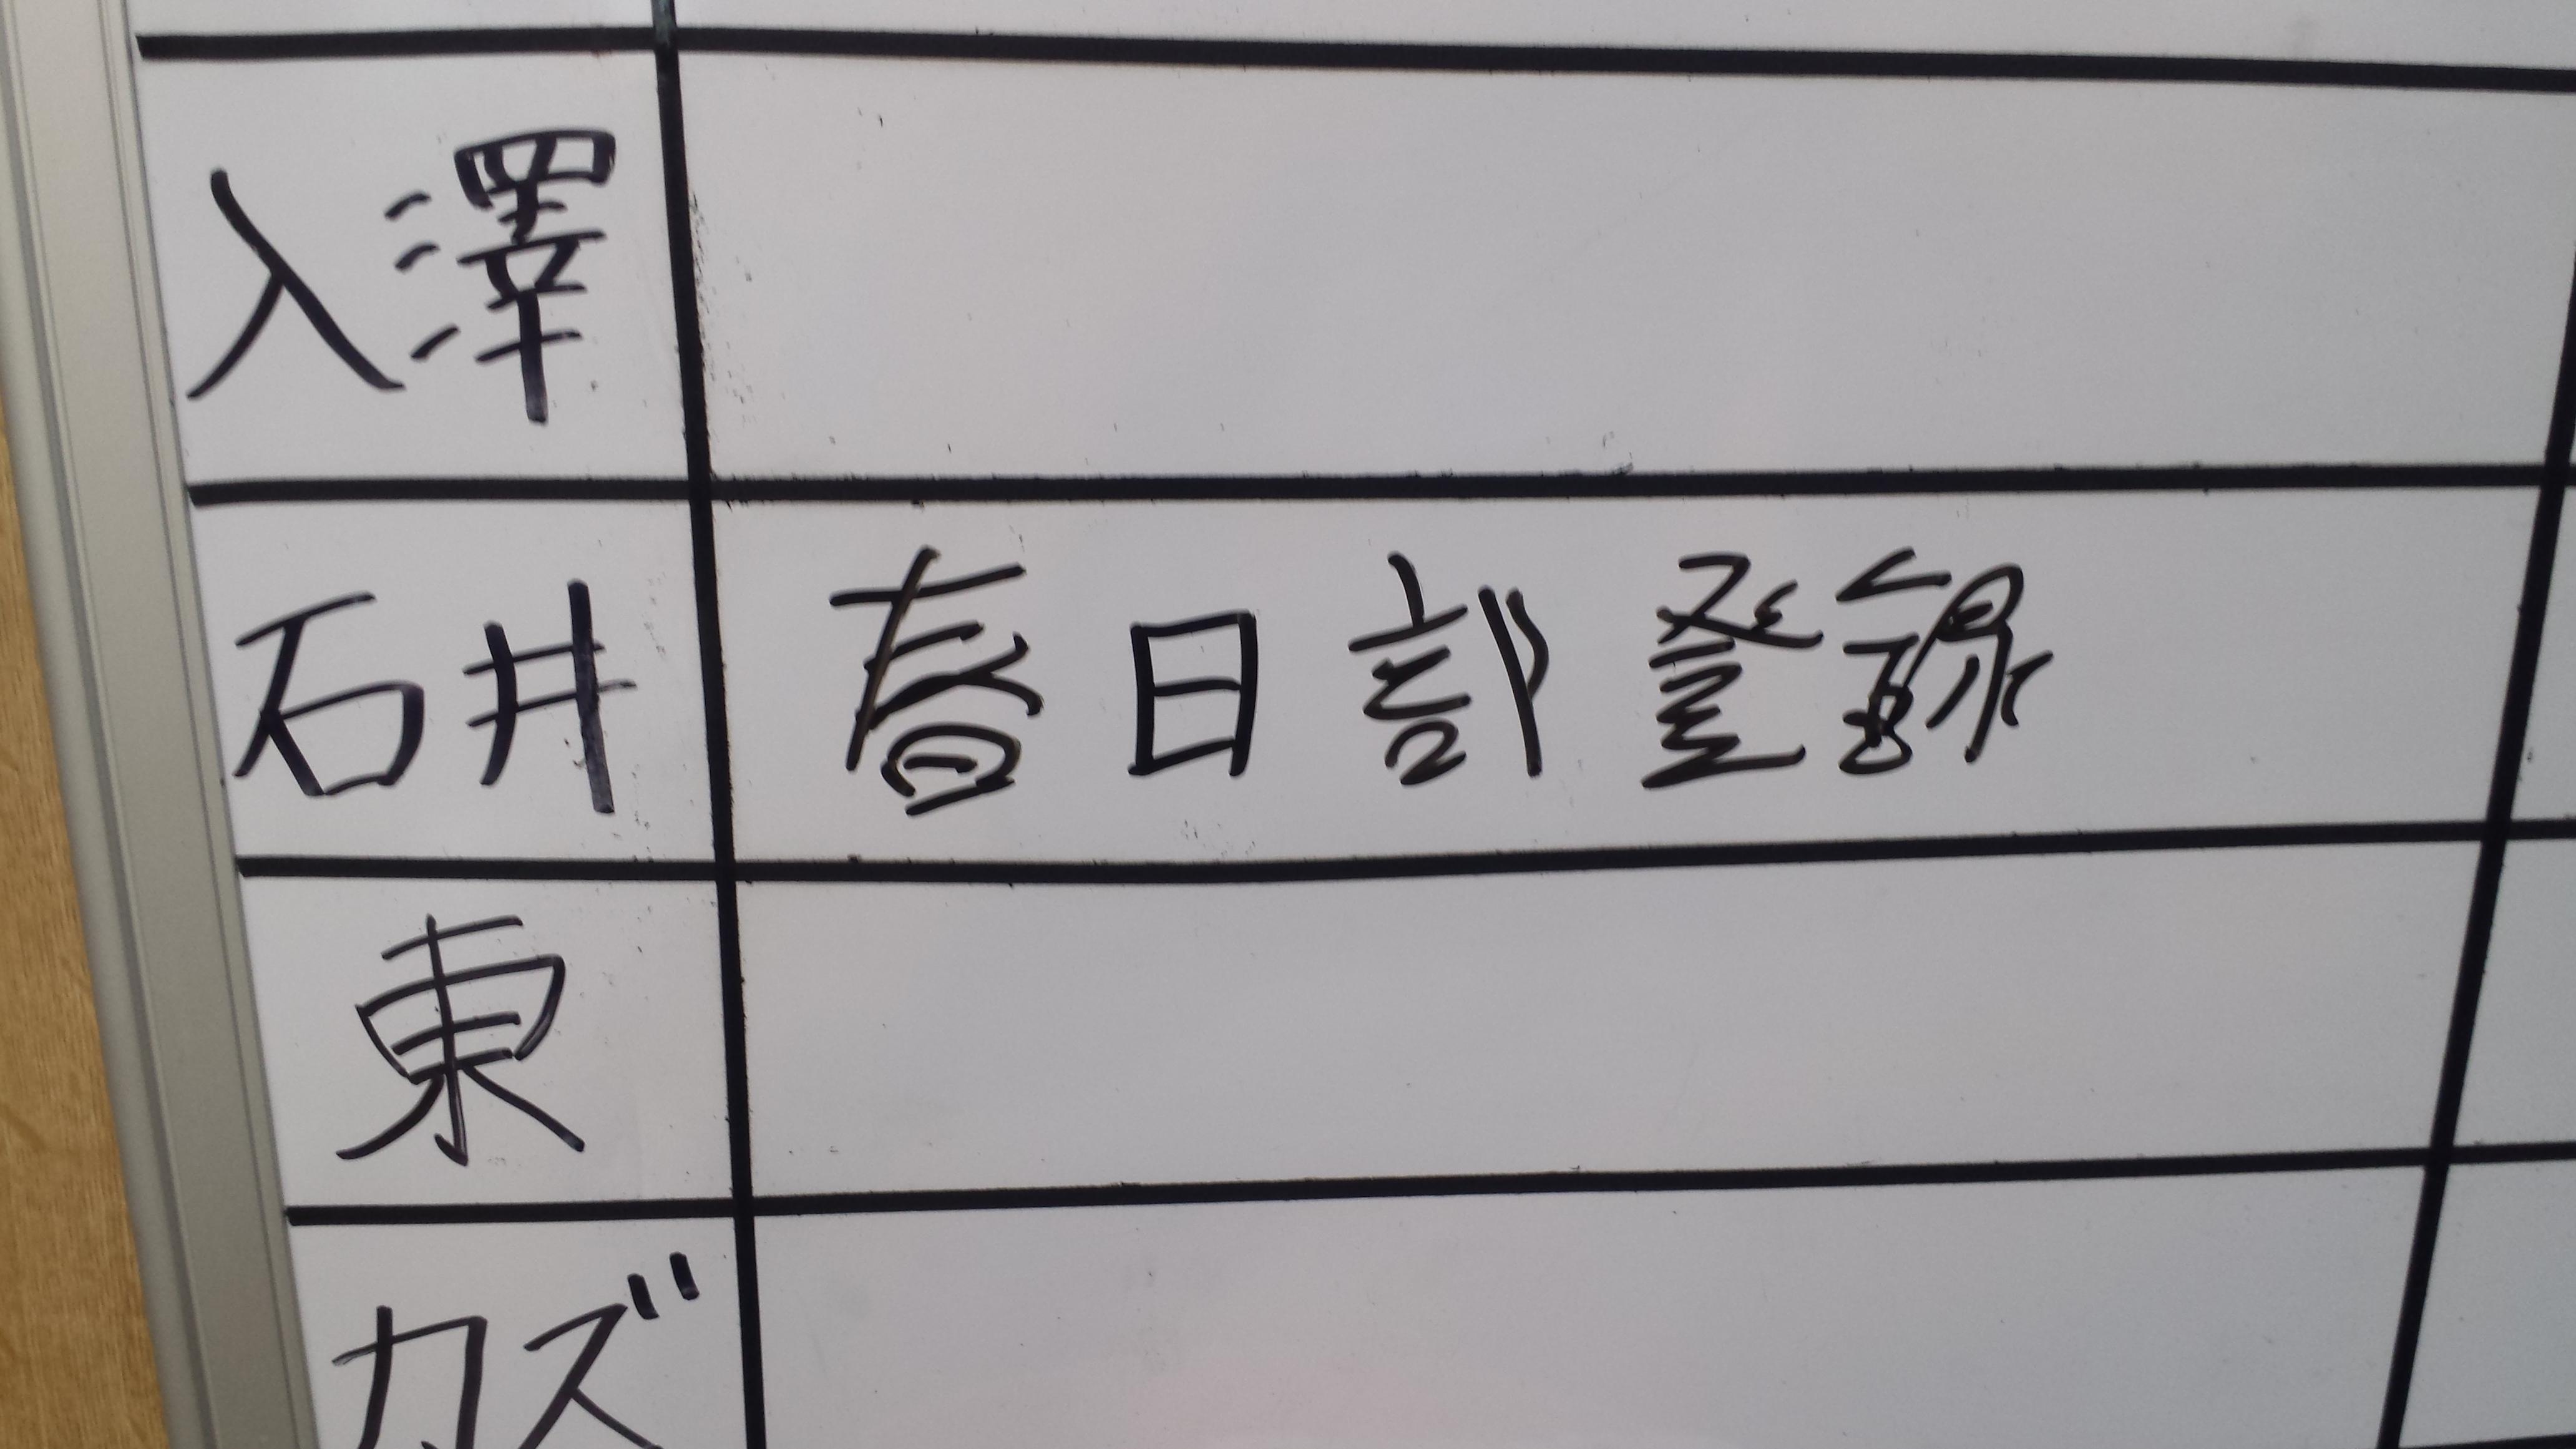 入澤
石井 春日部 登録
東
カズ